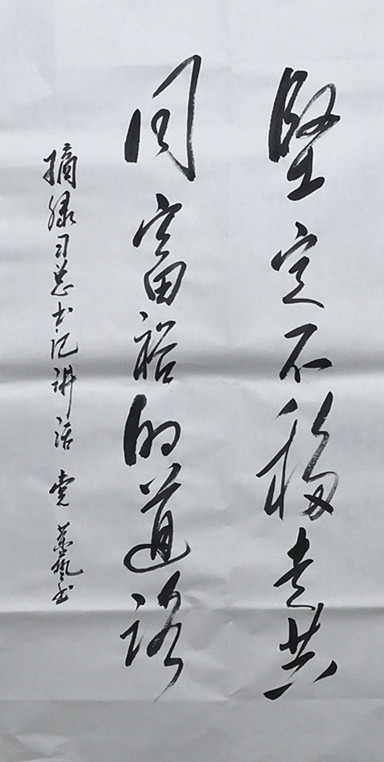 坚定不移走共
同富裕的道路
摘录习总书记讲话 党